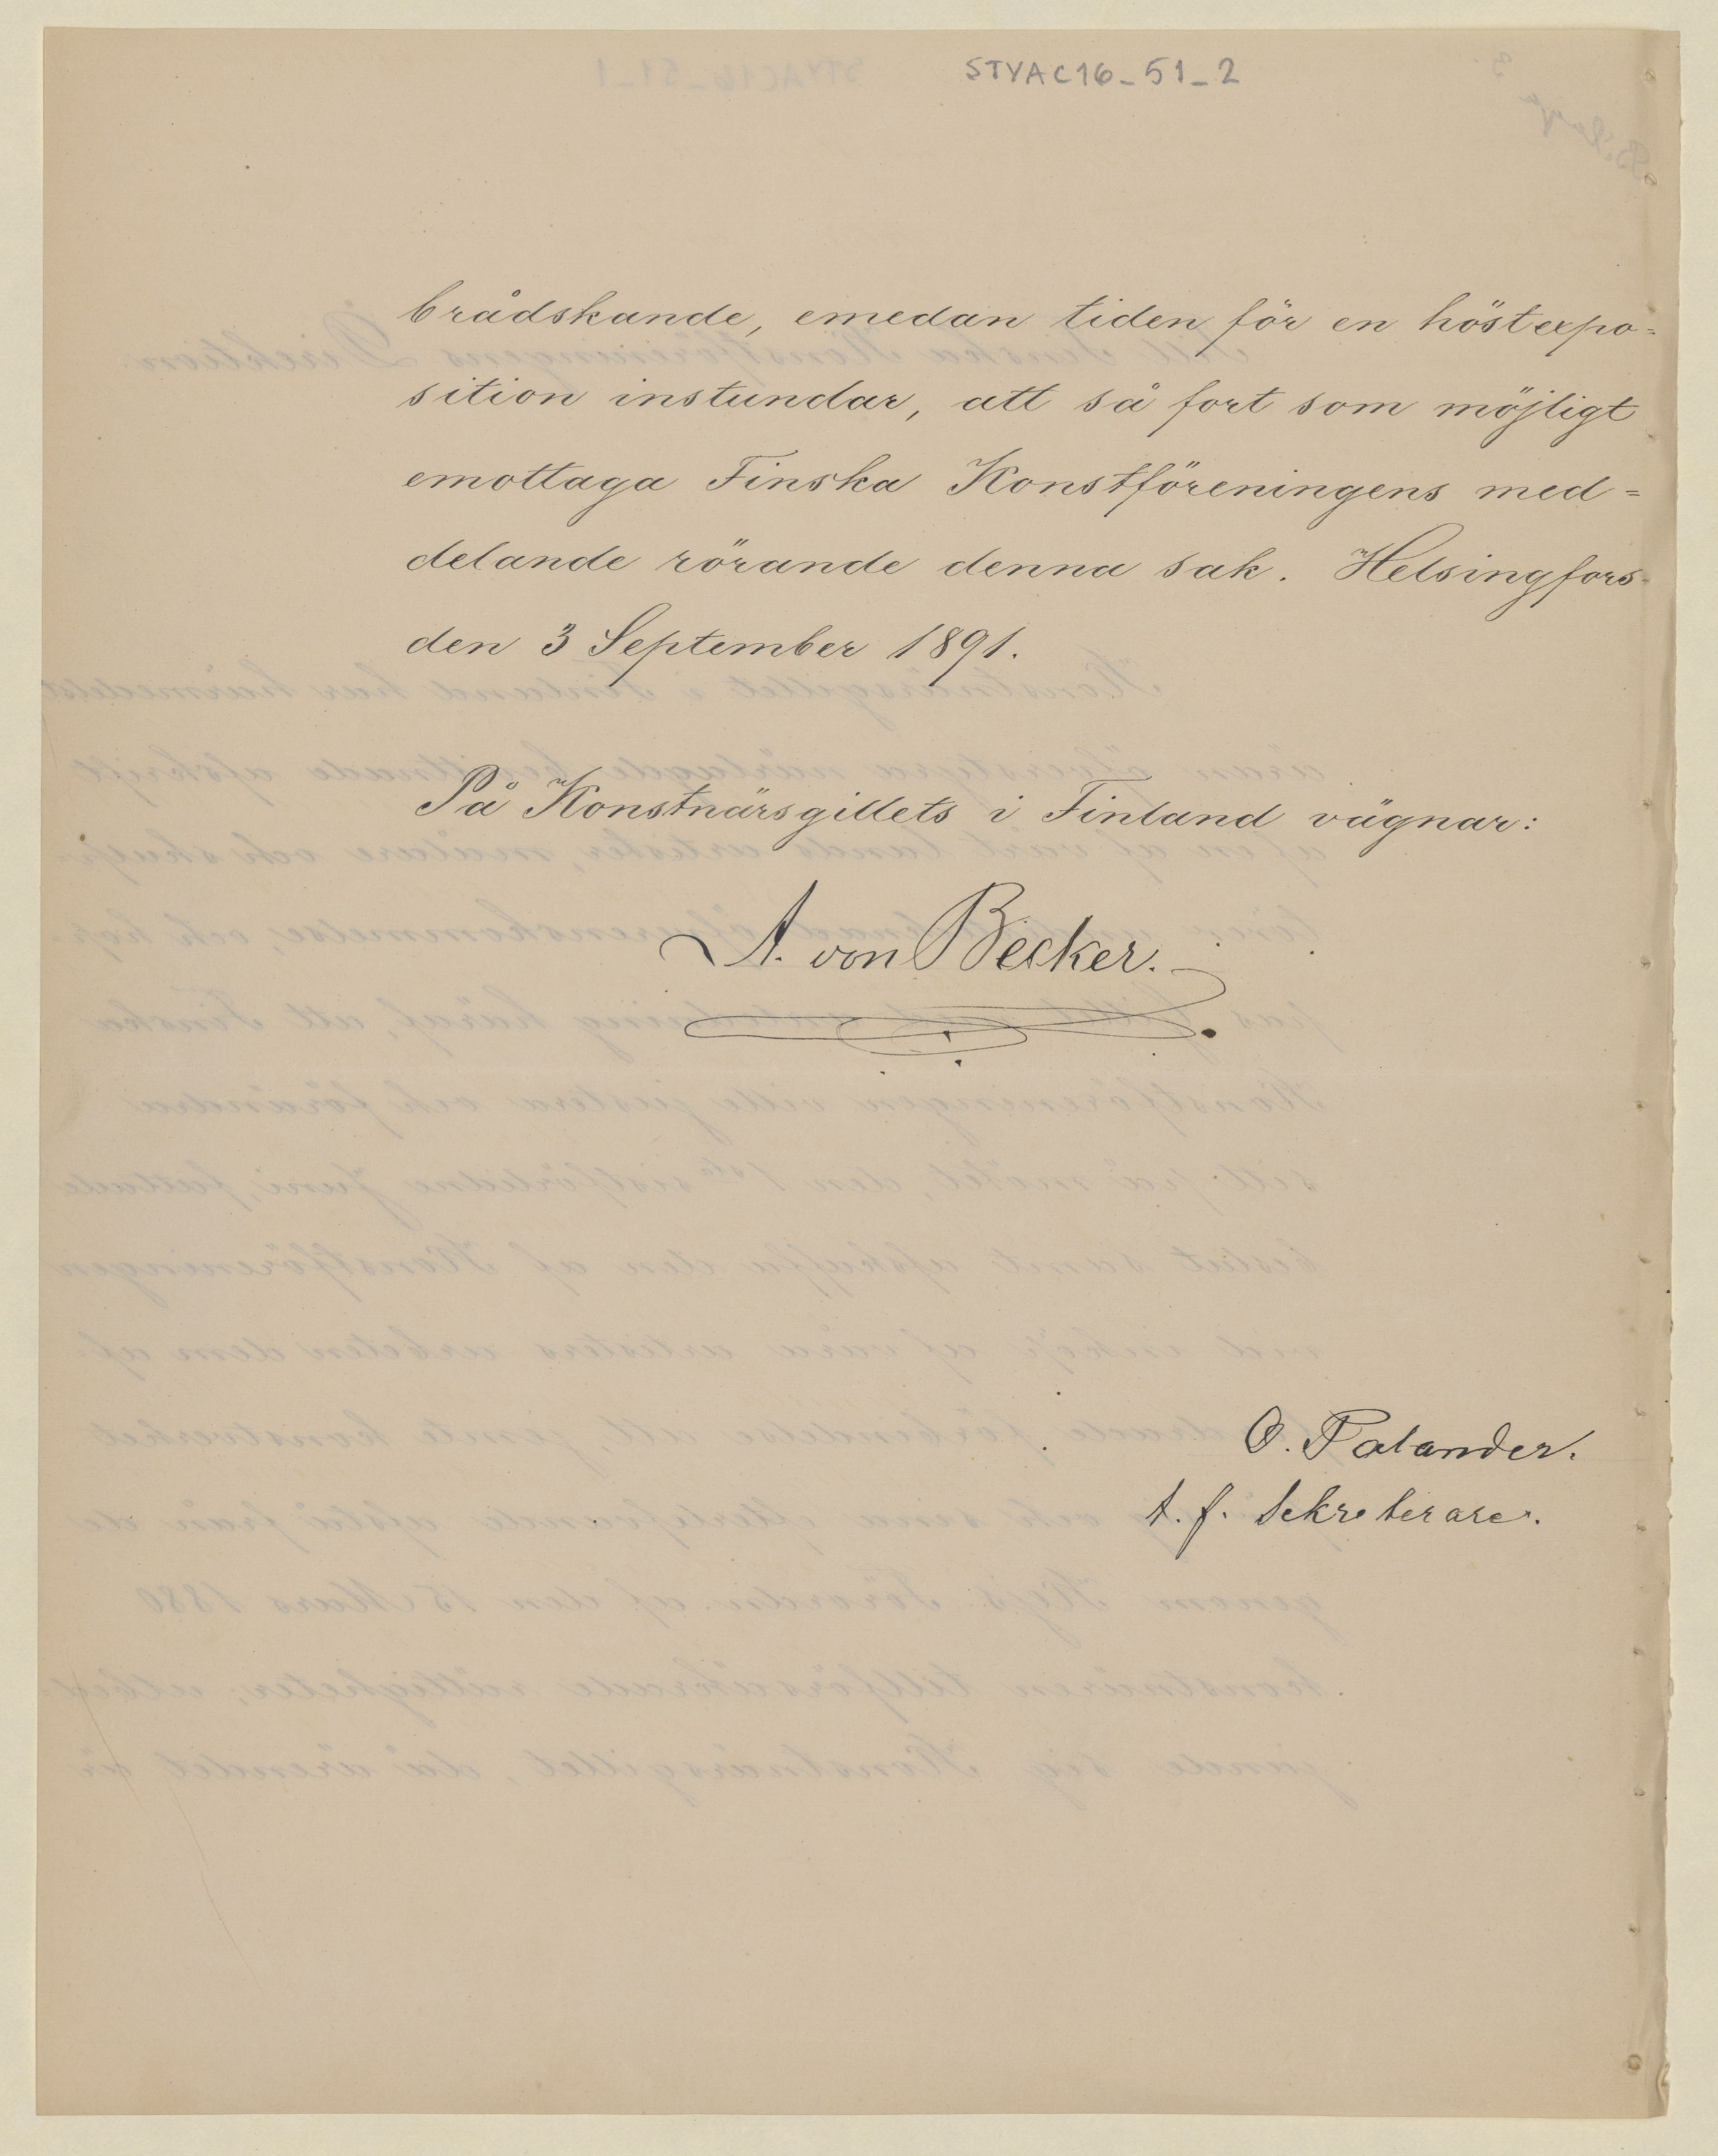 STYAC16_51_2
brådskande, emedan tiden för en höstexpo=
sition instundar, att så fort som möjligt
emottaga Finska Konstföreningens med=
delande rörande denna sak. Helsingfors
den 3 September 1891.
På Konstnärsgillets i Finland vägnar:
A. von Becker.
O. Palander.
t. f. Sekreterare.